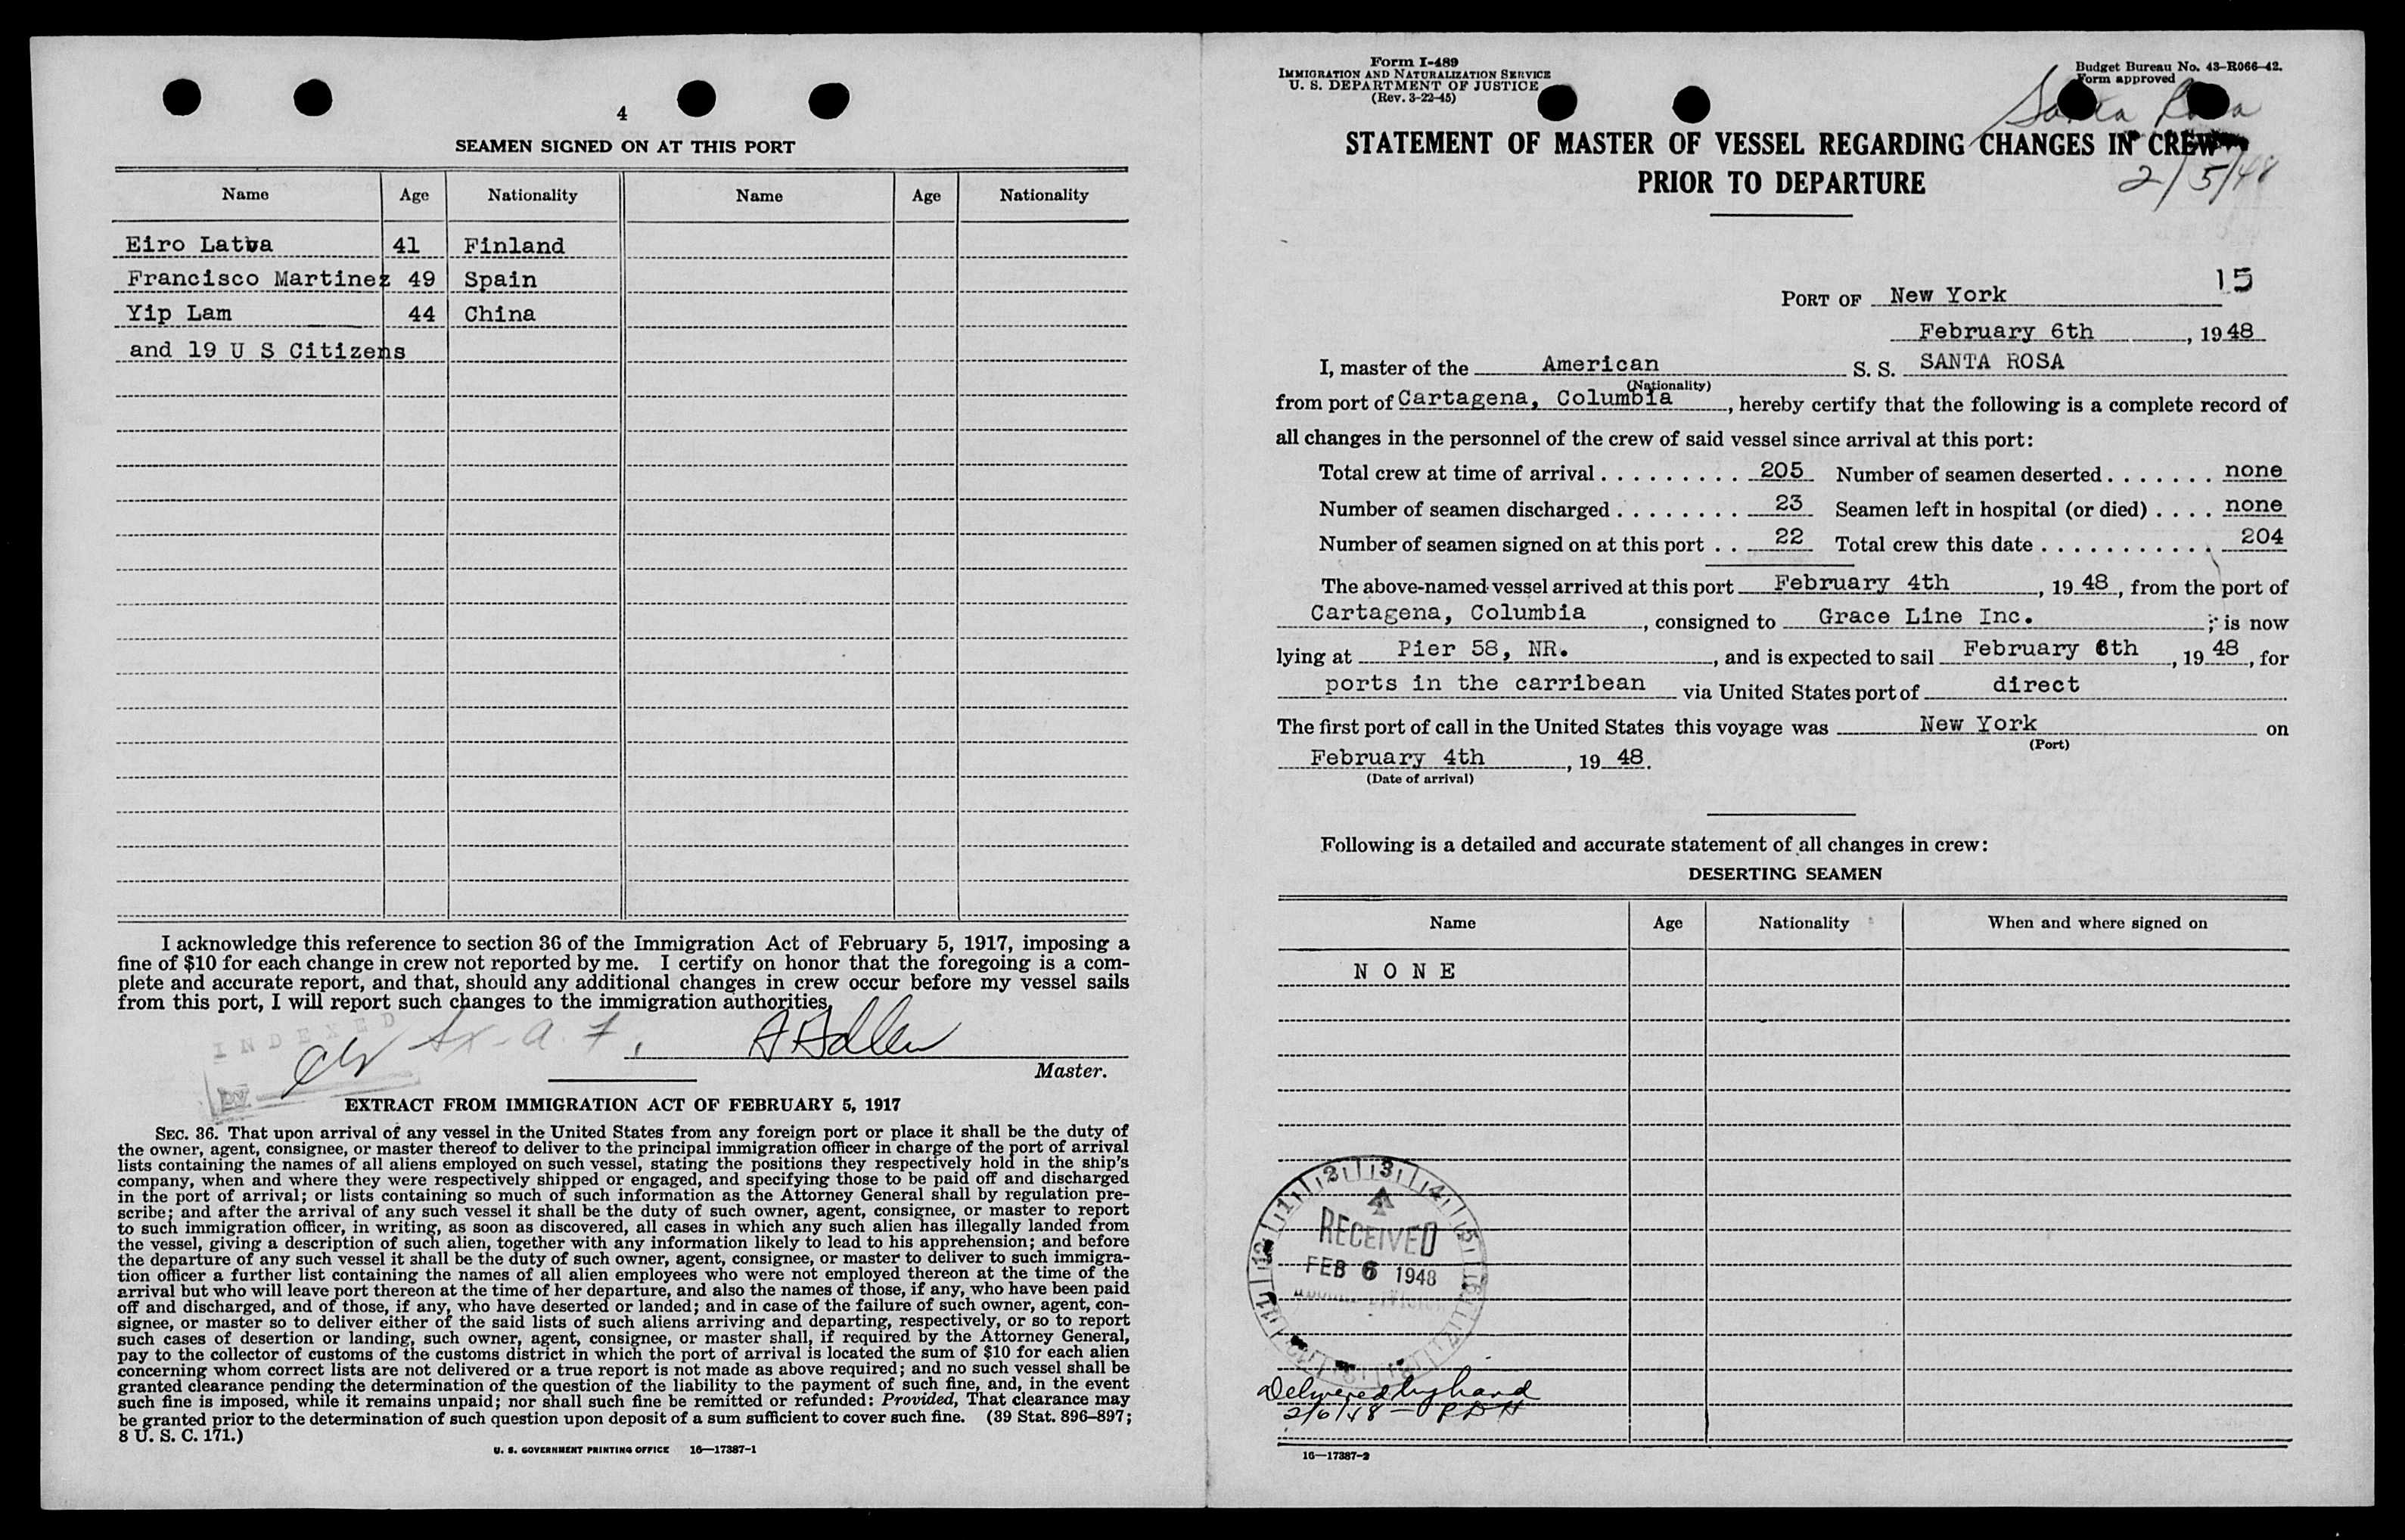 4
SEAMEN SIGNED ON AT THIS PORT
Name Age Nationality Name Age Nationality
Eiro Latva 41 Finland
Francisco Martinez 49 Spain
Yip Lam 44 China
and 19 U S Citizens
I acknowledge this reference to section 36 of the Immigration Act of February 5, 1917, imposing a
fine of $10 for each change in crew not reported by me. I certify on honor that the foregoing is a com-
plete and accurate report, and that, should any additional changes in crew occur before my vessel sails
from this port, I will report such changes to the immigration authorities.
INDEXED
Master.
EXTRACT FROM IMMIGRATION ACT OF FEBRUARY 5, 1917
SEC. 36. That upon arrival of any vessel in the United States from any foreign port or place it shall be the duty of
the owner, agent, consignee, or master thereof to deliver to the principal immigration officer in charge of the port of arrival
lists containing the names of all aliens employed on such vessel, stating the positions they respectively hold in the ship's
company, when and where they were respectively shipped or engaged, and specifying those to be paid off and discharged
in the port of arrival; or lists containing so much of such information as the Attorney General shall by regulation pre-
scribe; and after the arrival of any such vessel it shall be the duty of such owner, agent, consignee, or master to report
to such immigration officer, in writing, as soon as discovered, all cases in which any such alien has illegally landed from
the vessel, giving a description of such alien, together with any information likely to lead to his apprehension; and before
the departure of any such vessel it shall be the duty of such owner, agent, consignee, or master to deliver to such immigra-
tion officer a further list containing the names of all alien employees who were not employed thereon at the time of the
arrival but who will leave port thereon at the time of her departure, and also the names of those, if any, who have been paid
off and discharged, and of those, if any, who have deserted or landed; and in case of the failure of such owner, agent, con-
signee, or master so to deliver either of the said lists of such aliens arriving and departing, respectively, or so to report
such cases of desertion or landing, such owner, agent, consignee, or master shall, if required by the Attorney General,
pay to the collector of customs of the customs district in which the port of arrival is located the sum of $10 for each alien
concerning whom correct lists are not delivered or a true report is not made as above required; and no such vessel shall be
granted clearance pending the determination of the question of the liability to the payment of such fine, and, in the event
such fine is imposed, while it remains unpaid; nor shall such fine be remitted or refunded: Provided, That clearance may
be granted prior to the determination of such question upon deposit of a sum sufficient to cover such fine. (39 Stat. 896–897;
8 U. S. C. 171.)
U. S. GOVERNMENT PRINTING OFFICE 16—17387-1
Form I-489
IMMIGRATION AND NATURALIZATION SERVICE
U. S. DEPARTMENT OF JUSTICE
(Rev. 3-22-45)
Budget Bureau No. 43-R066-42.
Form approved
Santa Rosa
STATEMENT OF MASTER OF VESSEL REGARDING CHANGES IN CREW
PRIOR TO DEPARTURE
2/5/48
15
PORT OF New York
February 6th, 1948
I, master of the American S. S. SANTA ROSA
(Nationality)
from port of Cartagena, Columbia, hereby certify that the following is a complete record of
all changes in the personnel of the crew of said vessel since arrival at this port:
Total crew at time of arrival . . . . . . . . . 205 Number of seamen deserted . . . . . . . none
Number of seamen discharged . . . . . . . . 23 Seamen left in hospital (or died) . . . . none
Number of seamen signed on at this port . . 22 Total crew this date . . . . . . . . . . . 204
The above-named vessel arrived at this port February 4th, 1948, from the port of
Cartagena, Columbia, consigned to Grace Line Inc. ; is now
lying at Pier 58, NR., and is expected to sail February 6th, 1948, for
ports in the carribean via United States port of direct
The first port of call in the United States this voyage was New York on
(Port)
February 4th, 1948.
(Date of arrival)
Following is a detailed and accurate statement of all changes in crew:
DESERTING SEAMEN
Name Age Nationality When and where signed on
N O N E
RECEIVED
FEB 6 1948
Delivered by hand
2/6/48 — RDH
16—17387-2